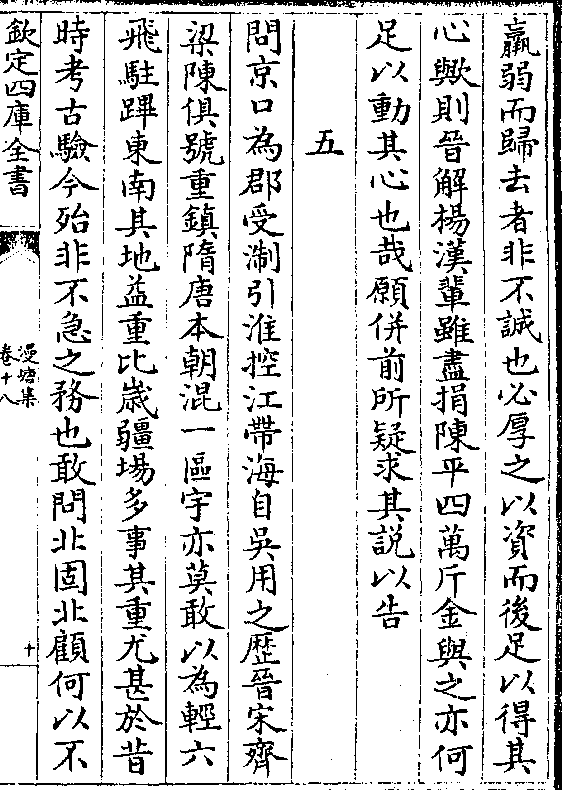 羸弱而歸去者非不誠也必厚之以資而後足以得其
心歟則晉解楊漢輩雖盡捐陳平四萬斤金與之亦何
足以動其心也哉願併前所疑求其説以告
五
問京口為郡受淛引淮控江帶海自吳用之歴晉宋齊
梁陳俱號重鎮隋唐本朝混一區宇亦莫敢以為輕六
飛駐蹕東南其地益重比歲疆場多事其重尤甚於昔
時考古驗今殆非不急之務也敢問北固北顧何以不
欽定四庫全書
漫塘集
卷十八
十